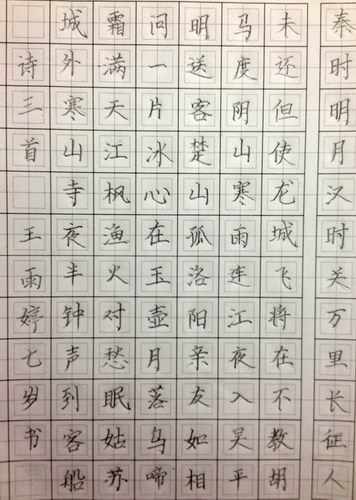 秦时明月汉时关万里长征人
未还但使龙城飞将在不教胡
马度阴山寒雨连江夜入吴平
明送客楚山孤洛阳亲友如相
问一片冰心在玉壶月落乌啼
霜满天江枫渔火对愁眠姑苏
城外寒山寺夜半钟声到客船
诗三首 王雨婷七岁书